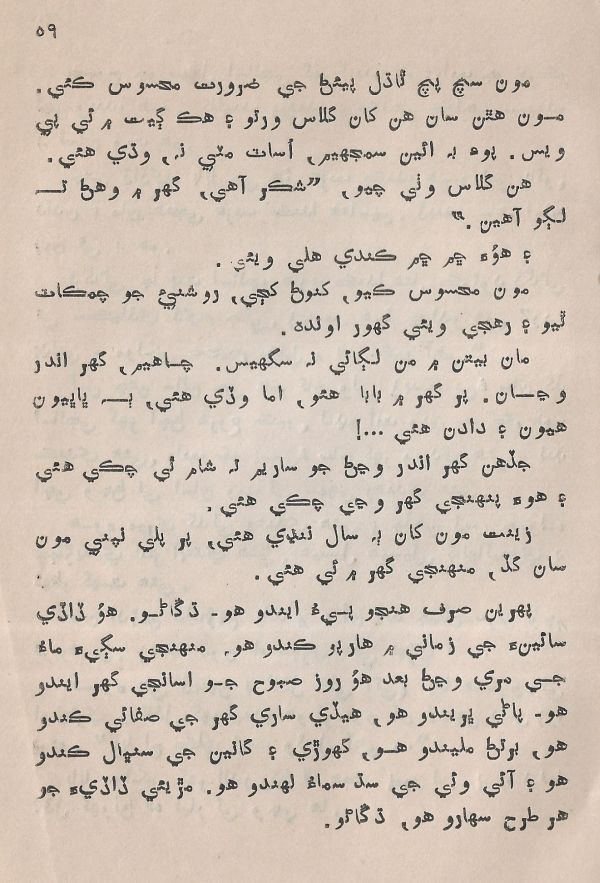 ٥٩
مون سچ پچ ٿاڌل پيئڻ جي ضرورت محسوس ڪئي.
مـون هٿن سان هن کان گلاس ورتو ۽ هڪ ڳيت ۾ ئي پي
ويس. پوءِ بہ ائين سمجهيم, اُساٽ مٽي نہ, وڌي هئي.
هن گلاس وٺي چيو, ”شڪر آهي, گهر ۾ وهڻ تـہ
لڳو آهين.“
۽ هوُءَ ڇم ڇم ڪندي هلي ويئي.
مون محسوس ڪيو, کنوڻ کڄي, روشنيءَ جو چمڪاٽ
ٿيو ۽ رهجي ويئي گهور اونده.
مان بيتن ۾ من لڳائي نہ سگهيس. چـاهيم, گهر اندر
وڃـان. پر گهر ۾ بابا هئو, اما وڏي هئي, ٻـہ ڀاڀيون
هيون ۽ دادن هئي ...!
جڏهن گهر اندر وڃڻ جو ساريم تہ شام ٿي چڪي هئي
۽ هوءَ پنهنجي گهر وڃي چڪي هئي.
زينت مون کان ٻہ سال ننڍي هئي, پر پلي نپني مون
سان گڏ, منهنجي گهر ۾ ئي هئي.
پهرين صرف هنجو پـيءُ ايندو هو- ڌڱاڻـو. هوُ ڏاڏي
سائينءَ جي زماني ۾ هارپو ڪندو هو. منهنجي سڳيءَ ماءُ
جـي مري وڃڻ بعد هوُ روز صبوح جـو اسانجي گهر ايندو
هو- پاڻي ڀريندو هو, هيڏي ساري گهر جي صفائي ڪندو
هو, برتڻ مليندو هـو, گهوڙي ۽ گائين جي سنڀال ڪندو
هو ۽ آئي وئي جي سڌ سماءُ لهندو هو. مڙيئي ڏاڏيءَ جو
هر طرح سهارو هو, ڌڱاڻو.